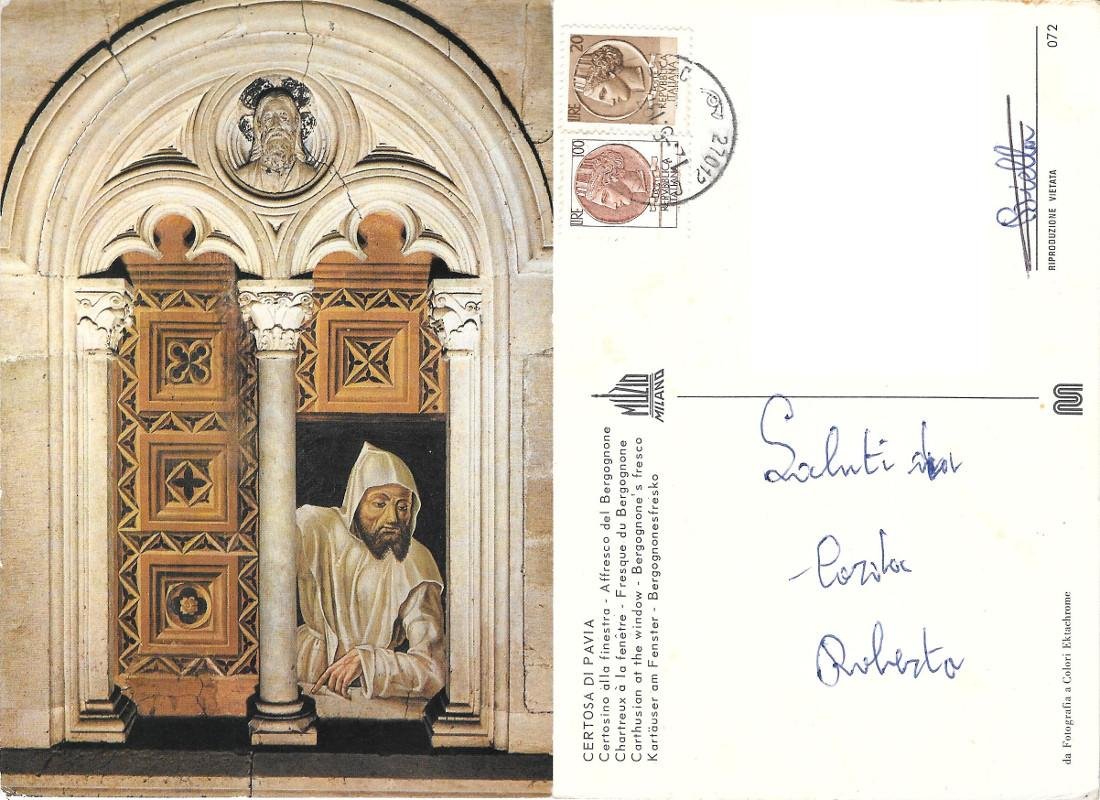 CERTOSA DI PAVIA
Certosino alla finestra - Affresco del Bergognone
Chartreux à la fenêtre - Fresque du Bergognone
Carthusian at the window - Bergognone's fresco
Kartäuser am Fenster - Bergognonesfresko
MUZIO
MILANO
LIRE 20
REPVBBLICA
ITALIANA
LIRE 100
REPVBBLICA
ITALIANA
Saluti da
Roberta
RIPRODUZIONE VIETATA
072
da Fotografia a Colori Ektachrome